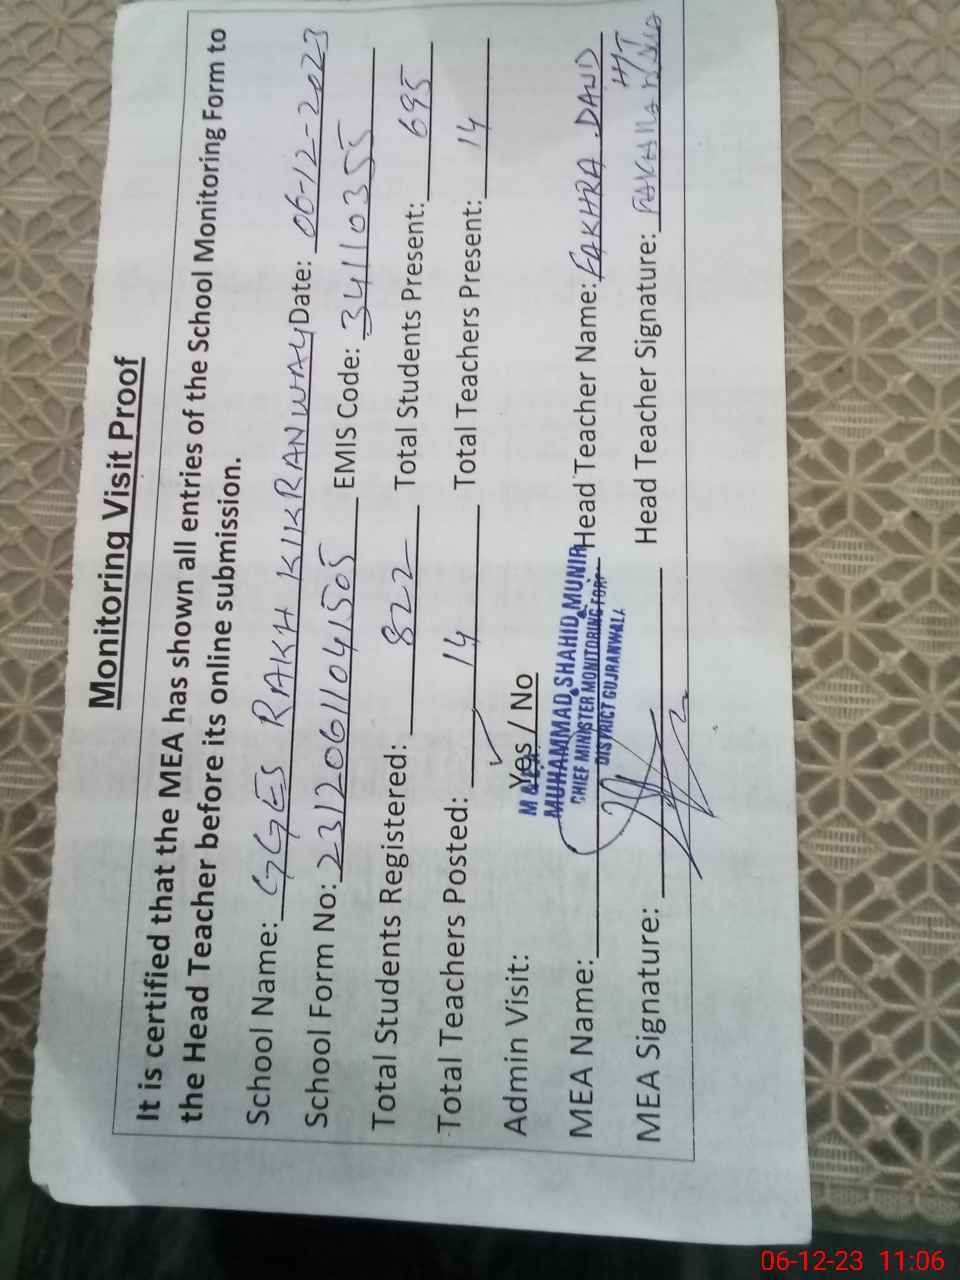 Monitoring Visit Proof
It is certified that the MEA has shown all entries of the School Monitoring Form to
the Head Teacher before its online submission.
School Name: GGES RAKH KIKRANWALY Date: 06-12-2023
School Form No: 23120611041505 EMIS Code: 34110355
Total Students Registered: 822 Total Students Present: 695
Total Teachers Posted: 14 Total Teachers Present: 14
Admin Visit: Yes / No
MUHAMMAD SHAHID MUNIR
CHIEF MINISTER MONITORING FORCE
DISTRICT GUJRANWALA
MEA Name: Head Teacher Name: FAKHRA DAUD
MEA Signature: Head Teacher Signature:
06-12-23 11:06